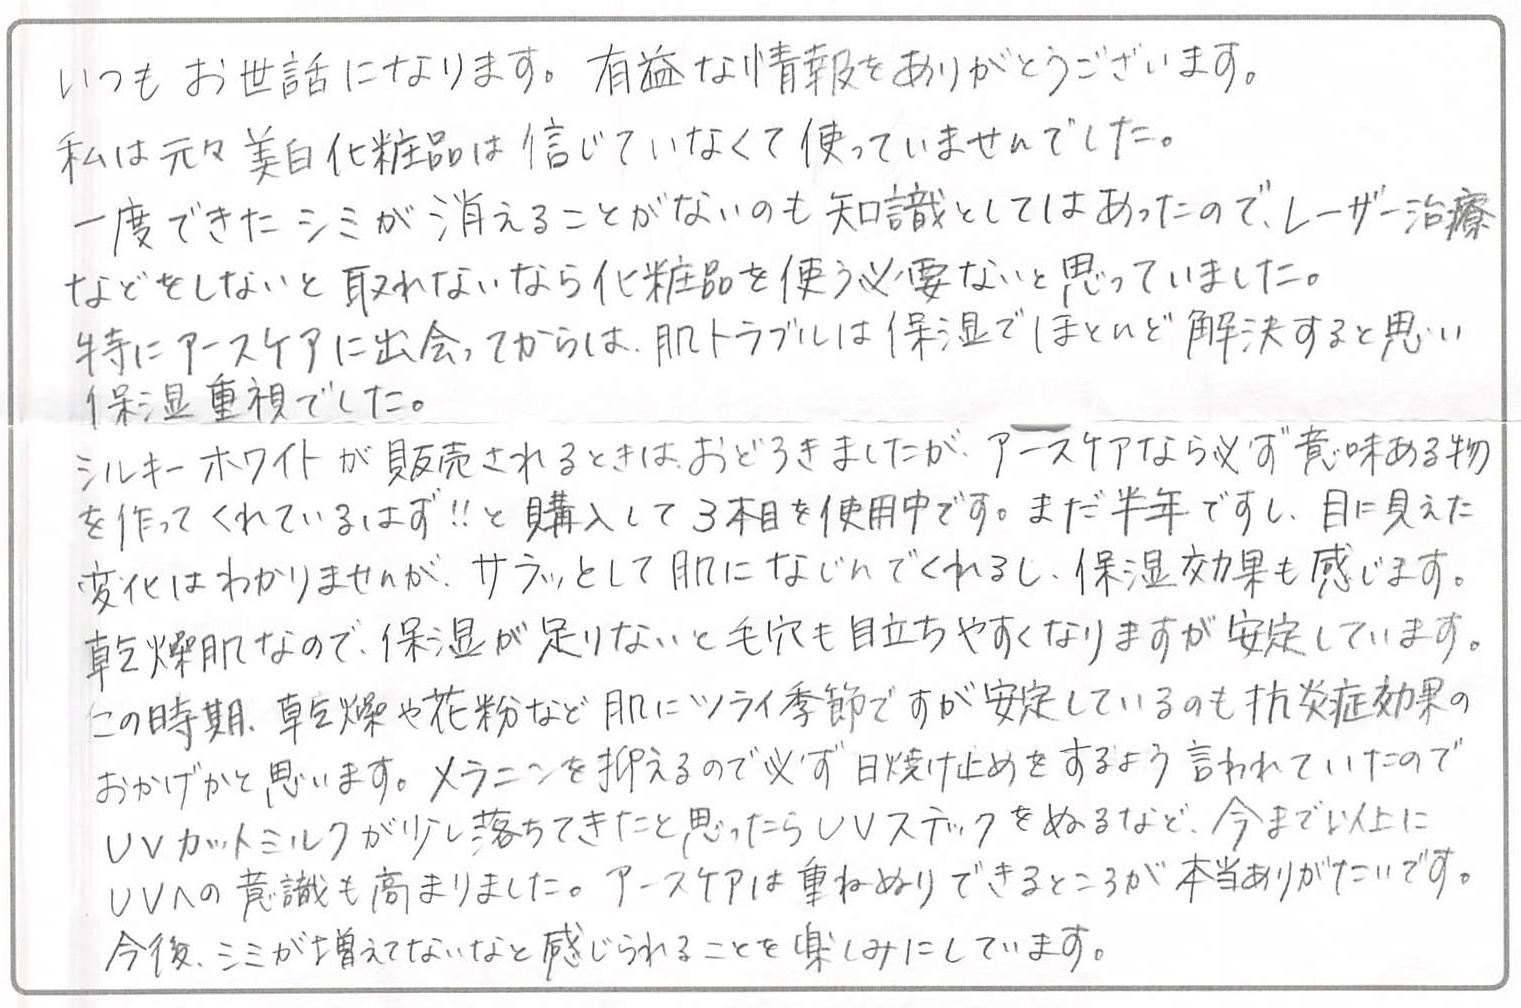 いつもお世話になります。有益な情報をありがとうございます。
私は元々美白化粧品は信じていなくて使っていませんでした。
一度できたシミが消えることがないのも知識としてはあったので、レーザー治療
などをしないと取れないなら化粧品を使う必要ないと思っていました。
特にアースケアに出会ってからは、肌トラブルは保湿でほとんど解決すると思い
保湿重視でした。
シルキーホワイトが販売されるときは、おどろきましたが、アースケアなら必ず意味ある物
を作ってくれているはず!!と購入して3本目を使用中です。まだ半年ですし、目に見えた
変化はわかりませんが、サラッとして肌になじんでくれるし、保湿効果も感じます。
乾燥肌なので、保湿が足りないと毛穴も目立ちやすくなりますが安定しています。
この時期、乾燥や花粉など肌にツライ季節ですが安定しているのも抗炎症効果の
おかげかと思います。メラニンを抑えるので必ず日焼け止めをするよう言われていたので
UVカットミルクが少し落ちてきたと思ったらUVスティックをぬるなど、今まで以上に
UVへの意識も高まりました。アースケアは重ねぬりできるところが本当ありがたいです。
今後、シミが増えてないなと感じられることを楽しみにしています。